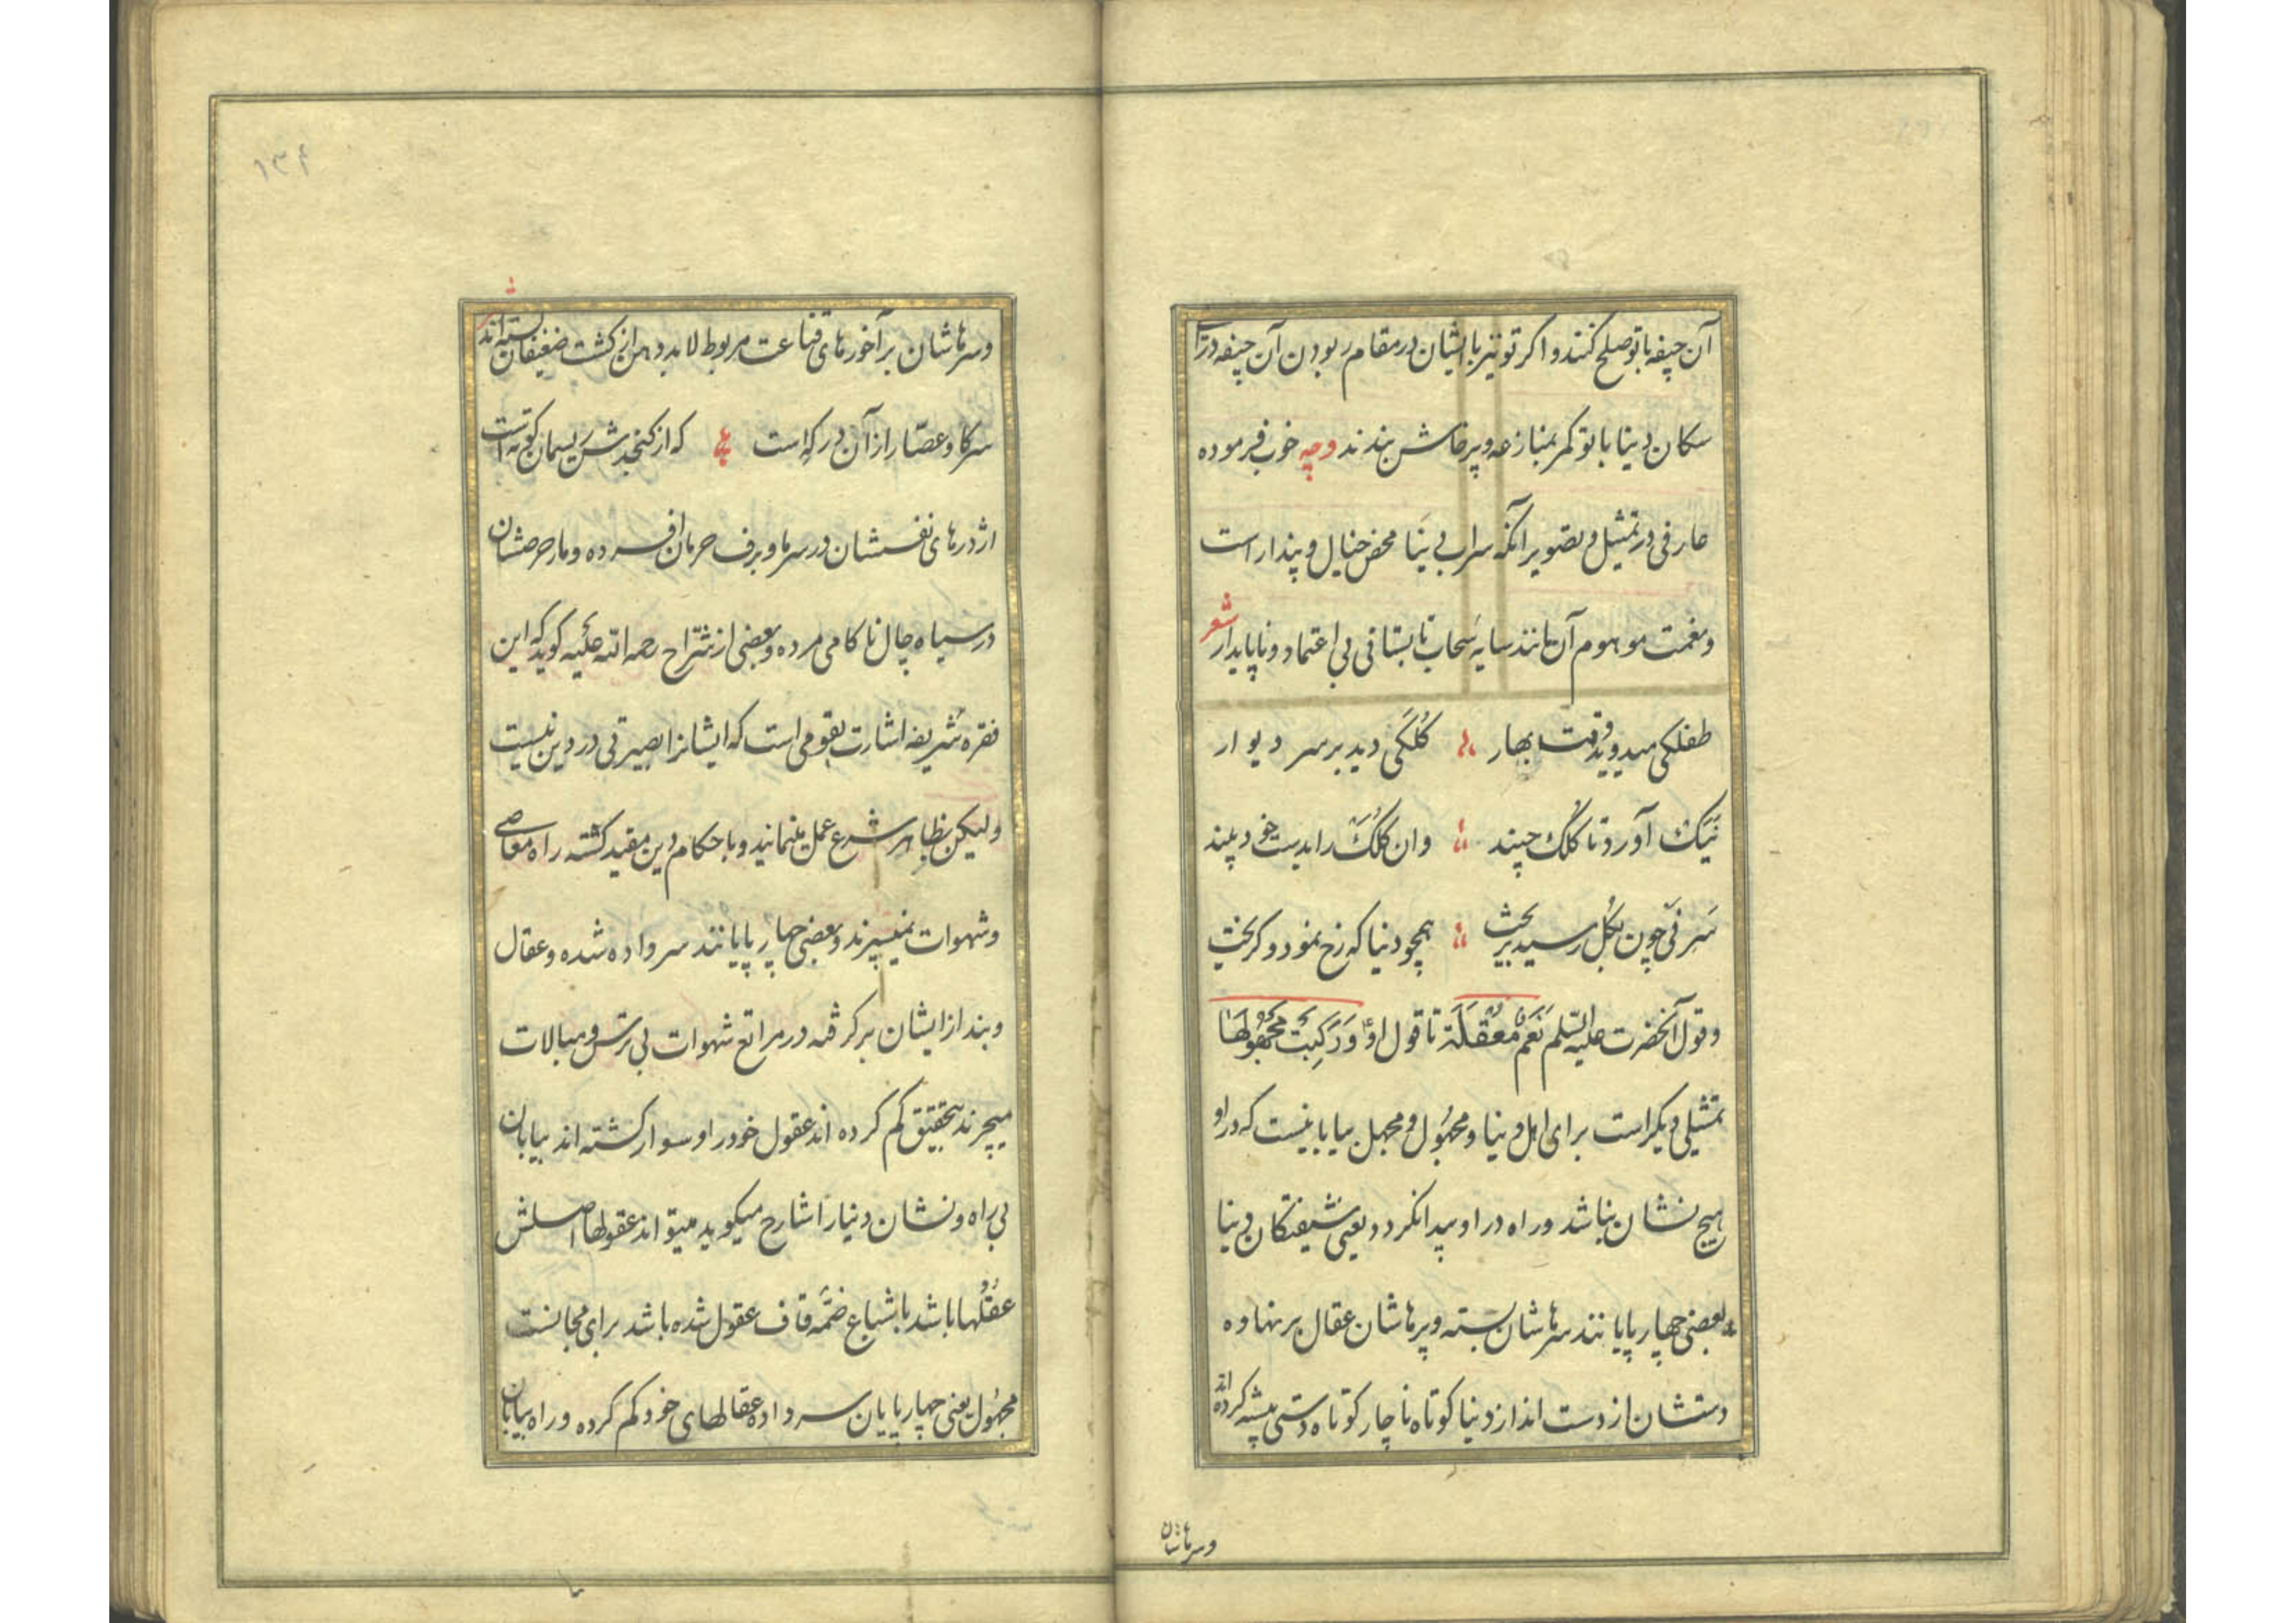 آن جیفه با تو صلح کنند و اکر تو نیز با ایشان در مقام ربودن آن جیفه در آ
سکان دنیا با تو کمر بمنازعه و پرخاش بندند و چه خوب فرموده
عارفی در تمثیل و تصویر آنکه سراب دنیا محض خیال و پندار است
و نعمت موهوم آن مانند سایه سحاب تابستانی بی اعتماد و ناپایدار شعر
طفلکی میدوید وقت بهار گُلَکی دید بر سر دیوار
نَیَکْ آورد تا گلک چیند وان گُلَکْ را بدست خود بیند
سَر نَی چون بگل رسید بریخت همچو دنیا که رخ نمود و کریخت
و قول آنحضرت علیه السّلم نَعَمٌ مُعَقَّلَة تا قول او وَ رَکِبَتْ مَجْهُولَهَا
تمثیلی دیکر است برای اهل دنیا و مجهُول و مجهل بیابانیست که در او
هیچ نشان نباشد و راه در او پیدا نکردد یعنی شیفتکان دنیا
بعضی چهار پایانند سرهاشان بسته و برپاشان عقال بر نهاده
دستشان از دست انداز دنیا کوتاه ناچار کوتاه دستی پیشه کرده اند
وسرهاشان
۱۳۴
وسرهاشان بر آخورهای قناعت مربوط لابد دهن از کشت ضعیفان بسته اند
سر کاو عصّار از آن در که است که از کنجدش ریسمان کوته است
اژدرهای نفسشان در سرما و برف حرمان افسرده و مار حرصشان
در سیاه چال ناکامی مرده و بعضی از شرّاح رحمه الله علیه کوید که این
فقره شریفه اشارت بقومی است که ایشانرا بصیرتی در دین نیست
ولیکن بظاهر شرع عمل مینمایند و باحکام دین مقید کشته راه معاصی
و شهوات نمیسپرند و بعضی چهار پایانند سر داده شده و عقال
و بند از ایشان بر کرفته در مراتع شهوات بی ترس و مبالات
میچرند بتحقیق کم کرده اند عقول خود را و سوار کشته اند بیابان
بی راه و نشان دنیا را شارح میکوید میتواند عقولها اصلش
عقُلُها باشد باشباع ضمّه قاف عقول شده باشد برای مجانست
مجهُول یعنی چهار پایان سر داده عقالهای خود کم کرده و راه بیابان